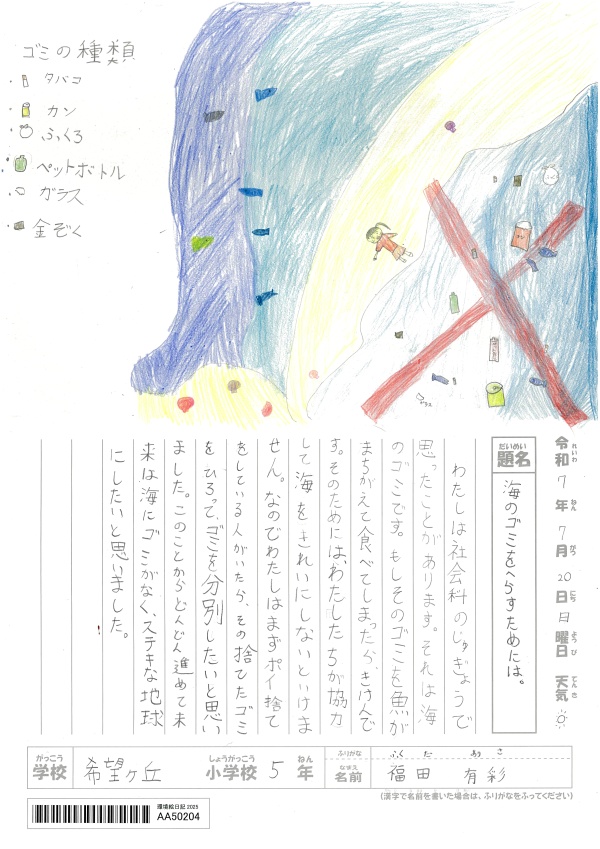 ゴミの種類
・タバコ
・カン
・ふくろ
・ペットボトル
・ガラス
・金ぞく
ふくろ
ガラス
令和7年7月20日日曜日 天気
れいわ ねん がつ にち ようび てんき
だいめい
題名
海のゴミをへらすためには。
わたしは社会科のじゅぎょうで
思ったことがあります。それは海
のゴミです。もしそのゴミを魚が
まちがえて食べてしまったら、きけんで
す。そのためには、わたしたちが協力
して海をきれいにしないといけま
せん。なのでわたしはまずポイ捨て
をしている人がいたら、その捨てたゴミ
をひろって、ゴミを分別したいと思い
ました。このことからどんどん進めて未
来は海にゴミがなく、ステキな地球
にしたいと思いました。
がっこう
学校
希望ヶ丘
しょうがっこう
小学校
5
ねん
年
ふりがな
ふくた ありさ
なまえ
名前
福田 有彩
(漢字で名前を書いた場合は、ふりがなをふってください)
環境絵日記 2025
AA50204